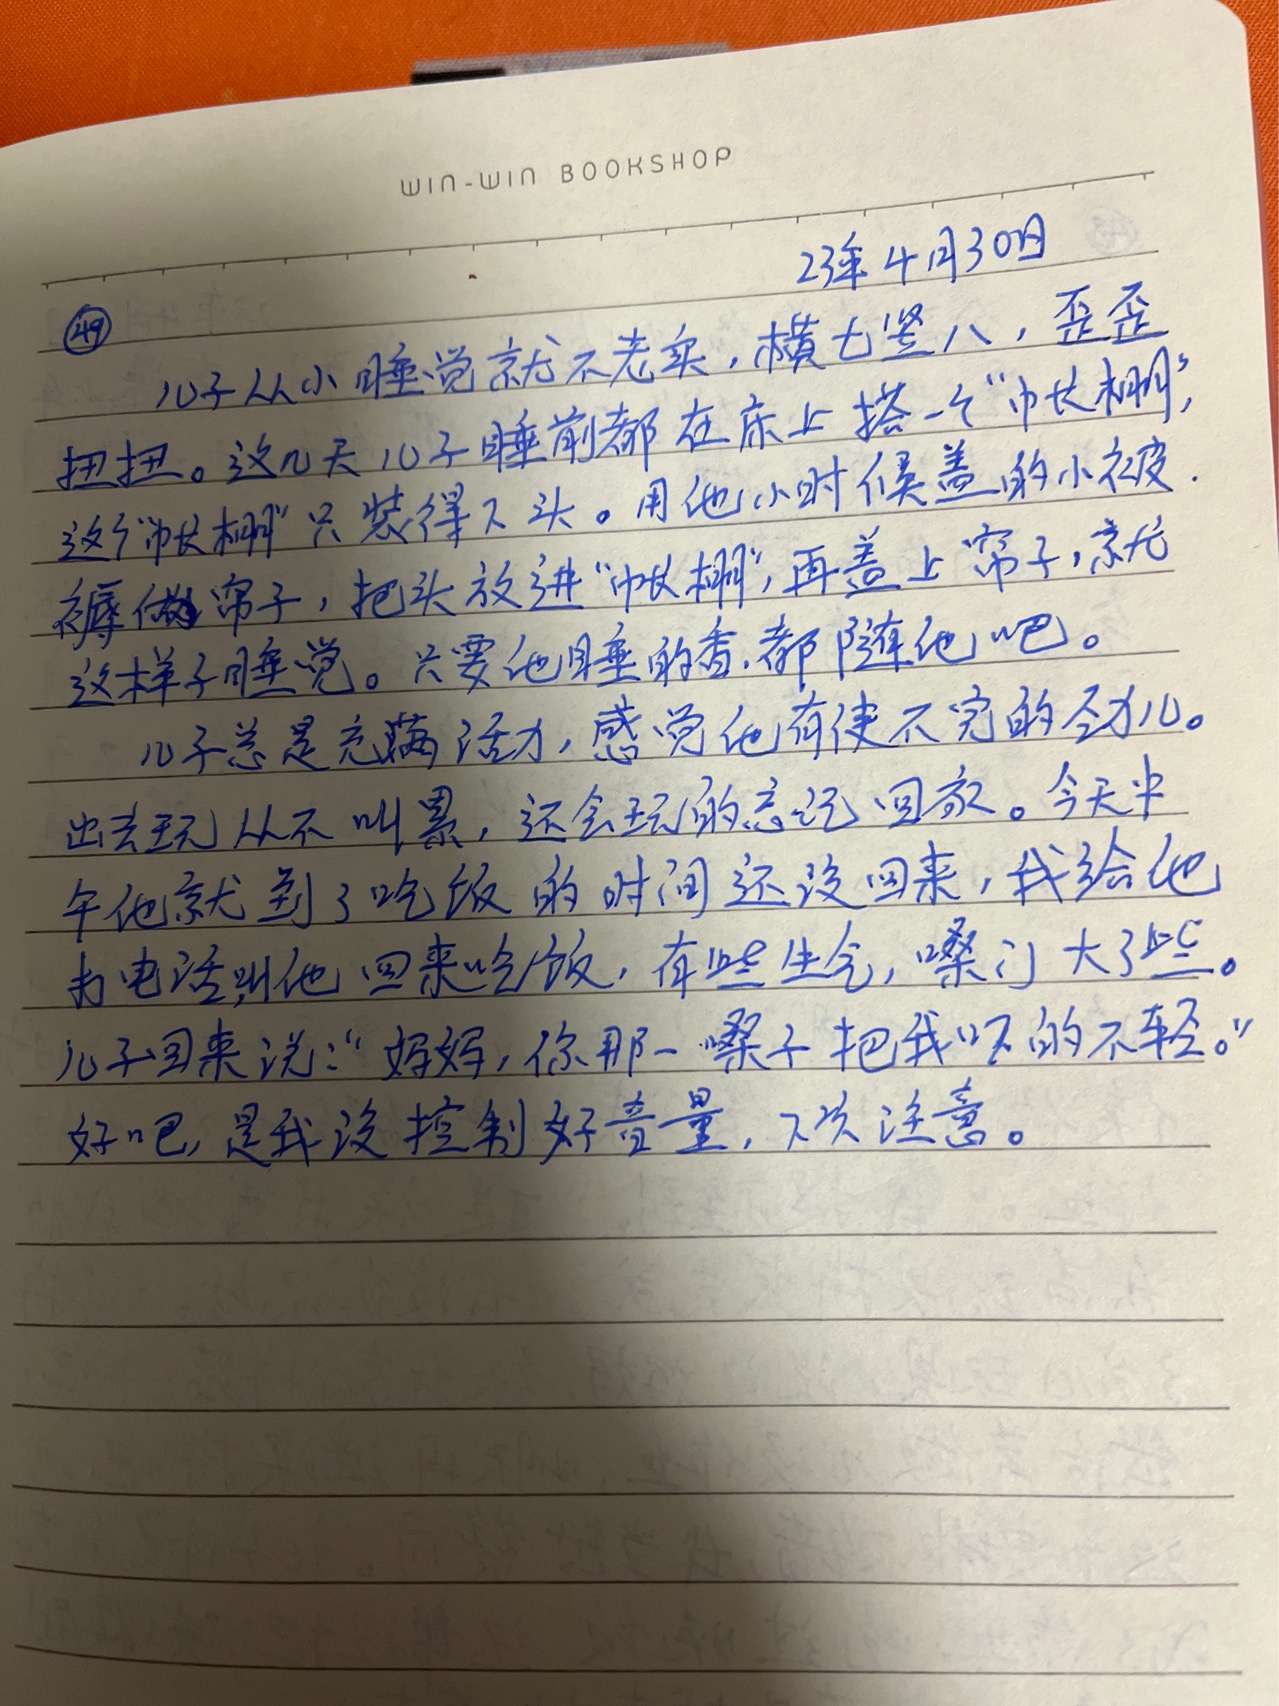 WIN-WIN BOOKSHOP
23年4月30日
㊾
儿子从小睡觉就不老实，横七竖八，歪歪
扭扭。这几天儿子睡前都在床上搭一个“帐棚”，
这个“帐棚”只装得下头。用他小时候盖的小被
褥做帘子，把头放进“帐棚”，再盖上帘子，就
这样子睡觉。只要他睡的香，都随他吧。
儿子总是充满活力，感觉他有使不完的劲儿。
出去玩从不叫累，还会玩的忘记回家。今天中
午他就到了吃饭的时间还没回来，我给他
打电话叫他回来吃饭，有些生气，嗓门大了些。
儿子回来说：“妈妈，你那一嗓子把我吓的不轻。”
好吧，是我没控制好音量，下次注意。